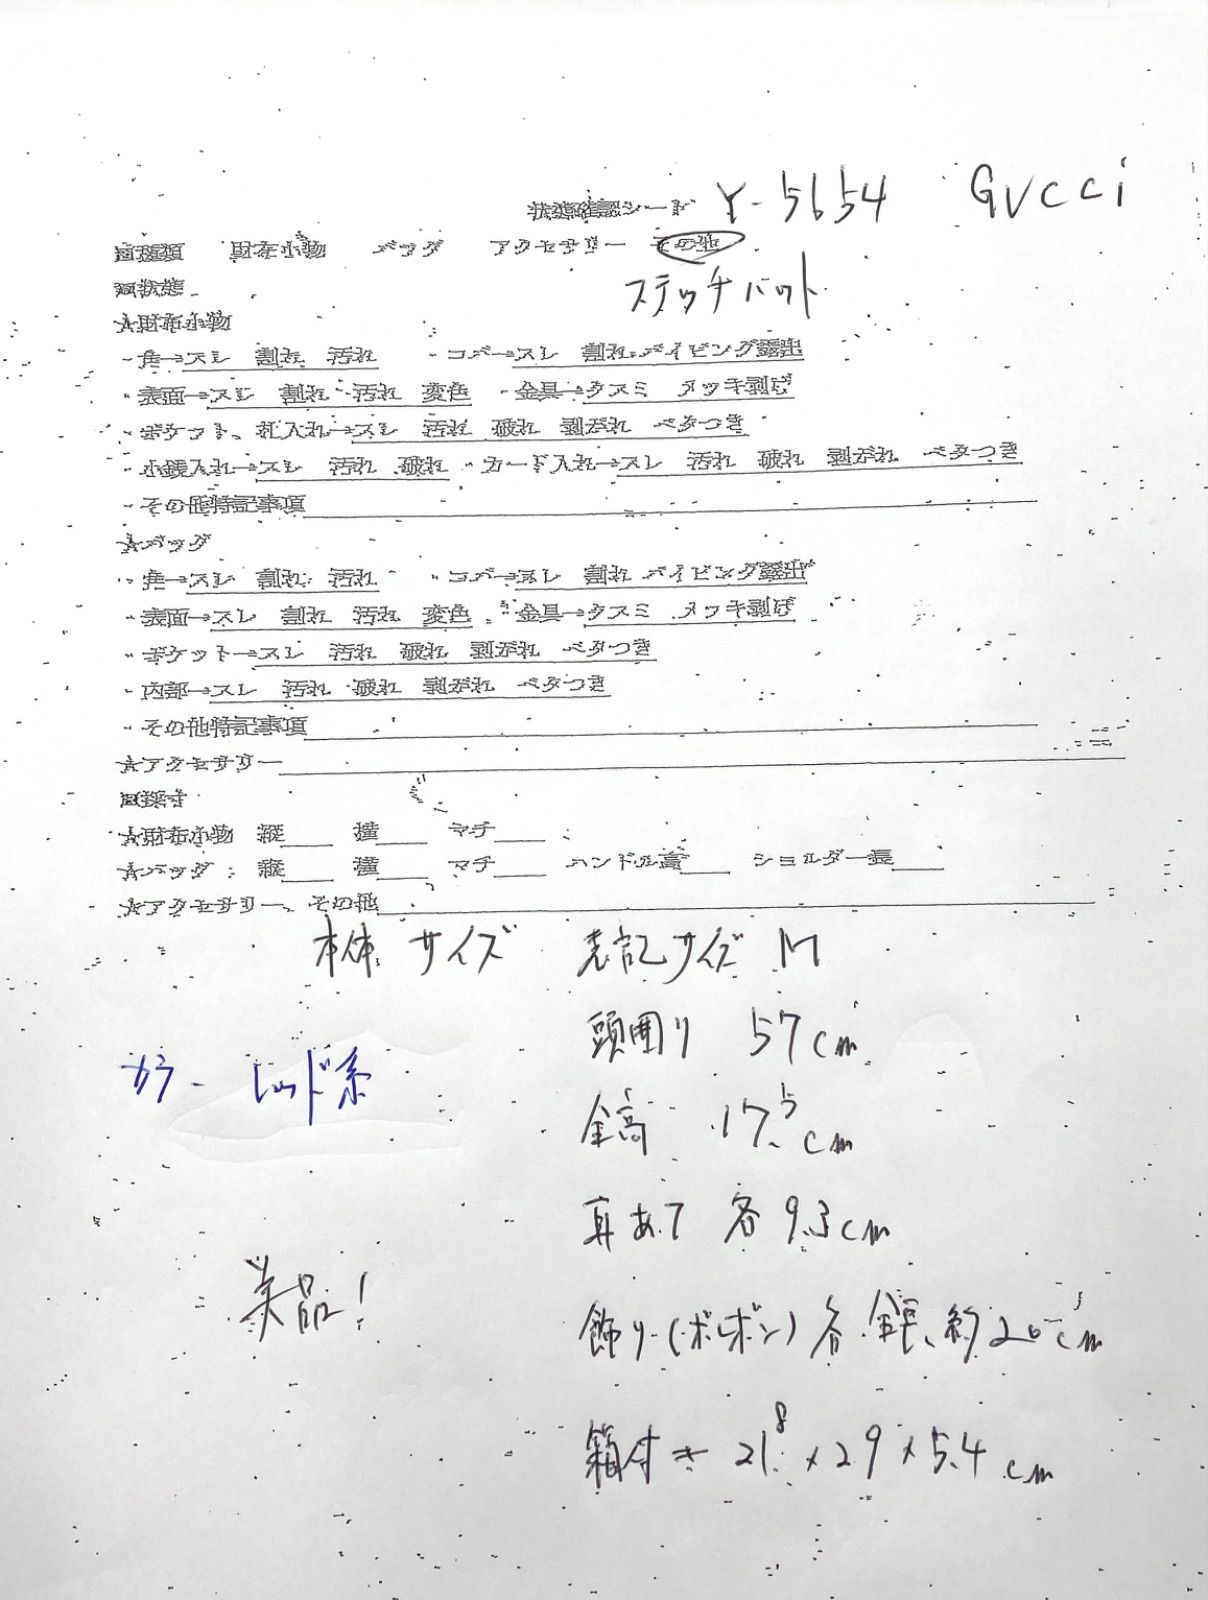 状態確認シート Y-5654 GUCCi
□種類 財布小物 バッグ アクセサリー その他
ステッチハット
□状態
☆財布小物
・角→スレ 割れ 汚れ ・コバ→スレ 割れ パイピング露出
・表面→スレ 割れ 汚れ 変色 ・金具→クスミ メッキ剥げ
・ポケット、札入れ→スレ 汚れ 破れ 剥がれ ベタつき
・小銭入れ→スレ 汚れ 破れ ・カード入れ→スレ 汚れ 破れ 剥がれ ベタつき
・その他特記事項
☆バッグ
・角→スレ 割れ 汚れ ・コバ→スレ 割れ パイピング露出
・表面→スレ 割れ 汚れ 変色 ・金具→クスミ メッキ剥げ
・ポケット→スレ 汚れ 破れ 剥がれ ベタつき
・内部→スレ 汚れ 破れ 剥がれ ベタつき
・その他特記事項
☆アクセサリー
□採寸
☆財布小物 縦 横 マチ
☆バッグ 縦 横 マチ ハンドル高 ショルダー長
☆アクセサリー、その他
本体サイズ 表記サイズ M
頭囲り 57cm
カラー レッド系
全高 17.5cm
耳あて 各9.3cm
美品!
飾り(ボンボン) 各 全長、約20cm
箱付き 21.8×29×5.4cm